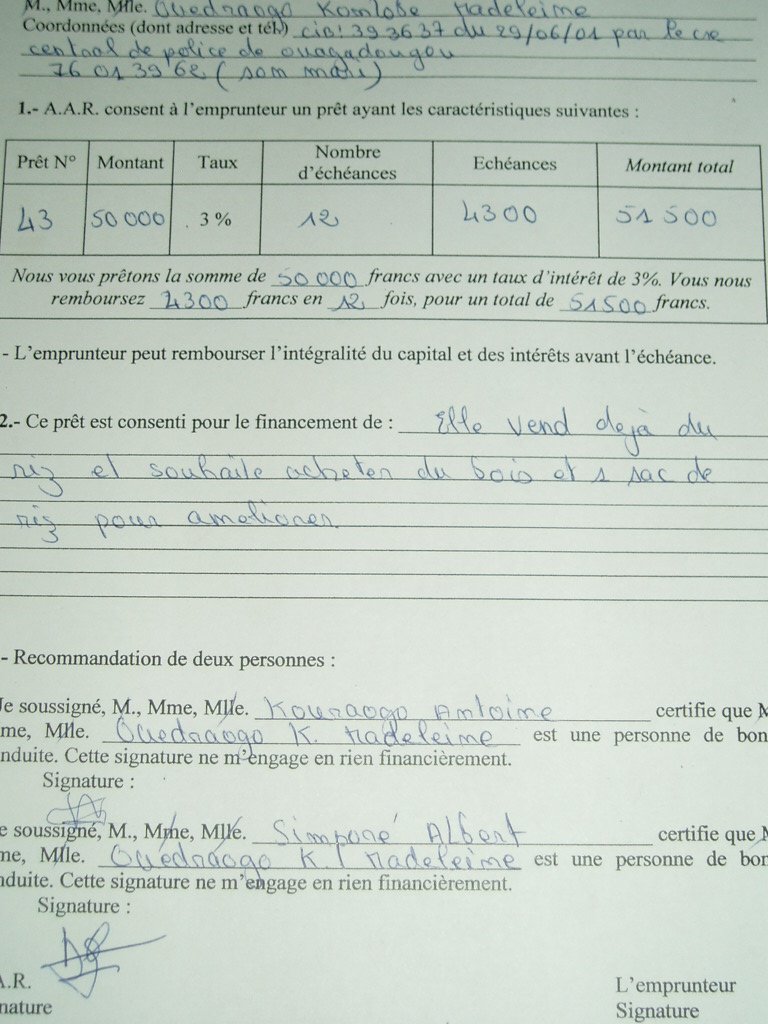 M., Mme, Mlle. Ouedraogo Komlobe Madeleine
Coordonnées (dont adresse et tél.) cib: 393637 du 29/06/01 par le cre
central de police de ouagadougou
76 01 39 62 (son mari)
1.- A.A.R. consent à l'emprunteur un prêt ayant les caractéristiques suivantes :
Prêt N° Montant Taux Nombre d'échéances Echéances Montant total
43 50 000 3 % 12 4300 51 500
Nous vous prêtons la somme de 50 000 francs avec un taux d'intérêt de 3%. Vous nous
remboursez 4300 francs en 12 fois, pour un total de 51500 francs.
- L'emprunteur peut rembourser l'intégralité du capital et des intérêts avant l'échéance.
2.- Ce prêt est consenti pour le financement de : Elle vend dejà du
riz et souhaite acheter du bois et 1 sac de
riz pour ameliorer
- Recommandation de deux personnes :
Je soussigné, M., Mme, Mlle. Kouraogo Antoine certifie que M
me, Mlle. Ouedraogo K. Madeleine est une personne de bon
nduite. Cette signature ne m'engage en rien financièrement.
Signature :
e soussigné, M., Mme, Mlle. Simporé Albert certifie que M
me, Mlle. Ouédraogo K. Madeleine est une personne de bon
nduite. Cette signature ne m'engage en rien financièrement.
Signature :
A.R. L'emprunteur
nature Signature